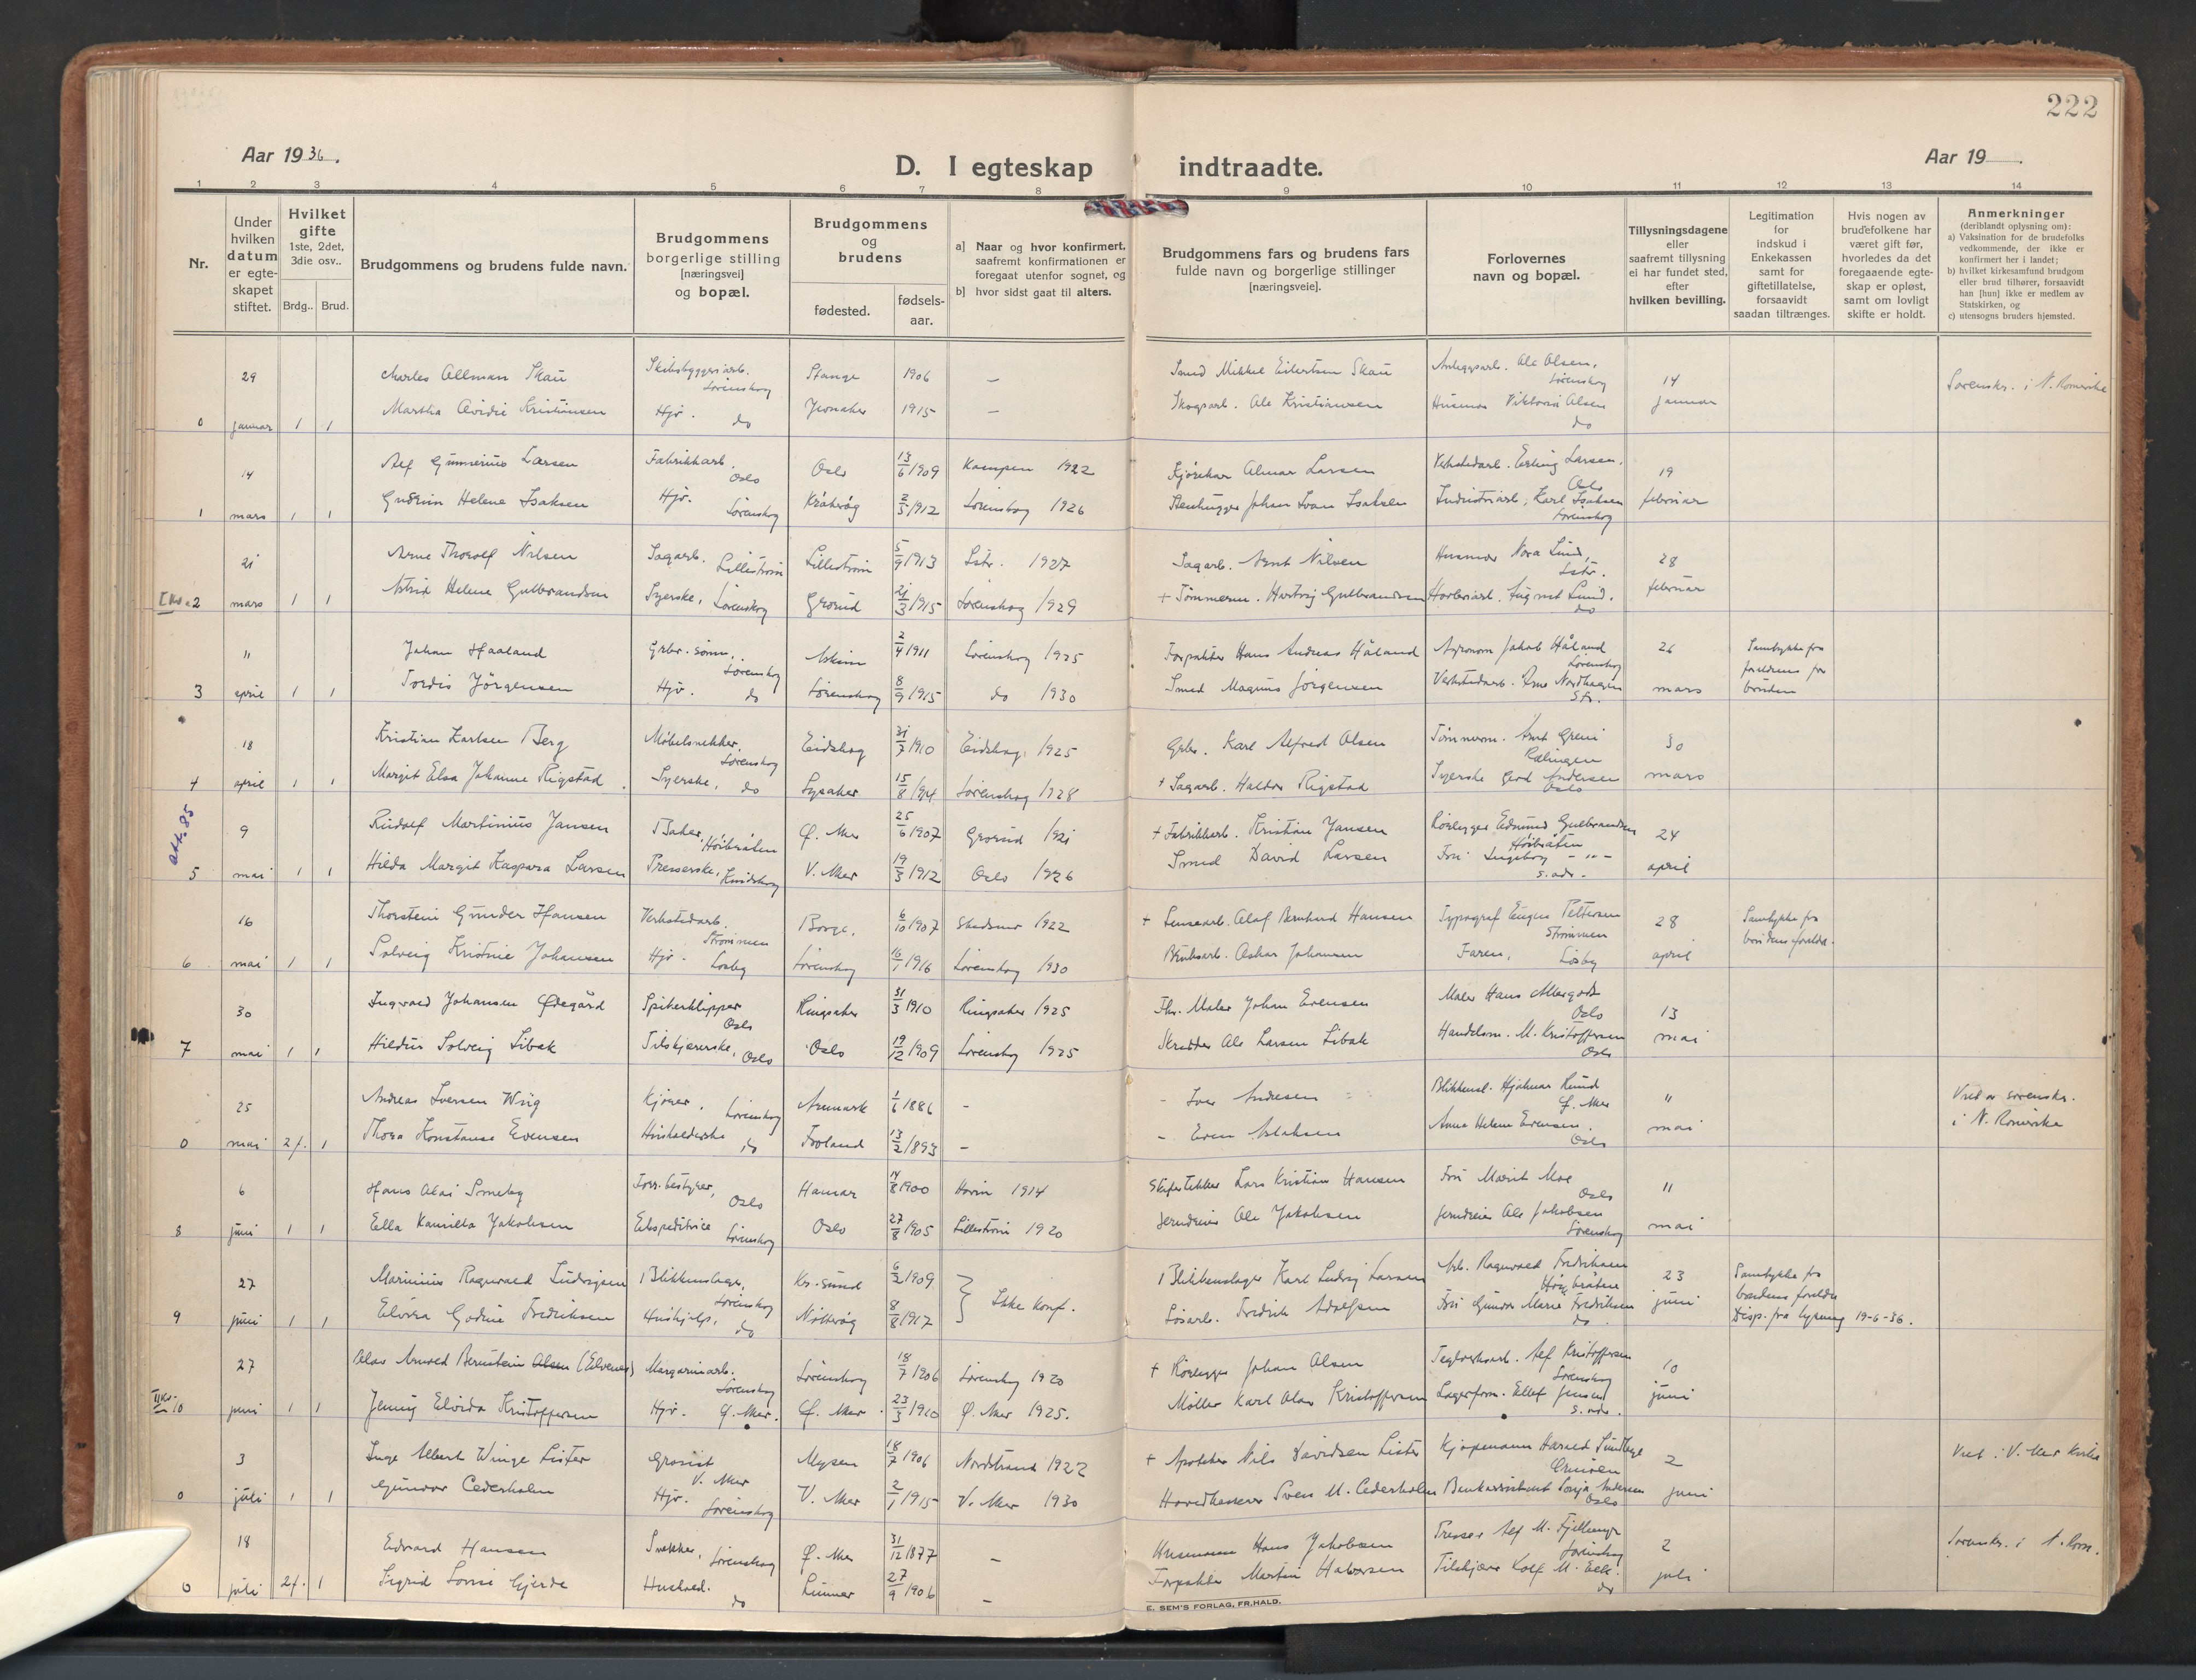 222
Aar 1936.
D. I egteskap indtraadte.
Aar 19
1 2 3 4 5 6 7 8 9 10 11 12 13 14
Nr.
Under hvilken datum er egteskapet stiftet.
Hvilket gifte 1ste, 2det, 3die osv..
Brdg.. Brud.
Brudgommens og brudens fulde navn.
Brudgommens borgerlige stilling [næringsvei] og bopæl.
Brudgommens og brudens
fødested. fødsels-aar.
a] Naar og hvor konfirmert, saafremt konfirmationen er foregaat utenfor sognet, og
b] hvor sidst gaat til alters.
Brudgommens fars og brudens fars fulde navn og borgerlige stillinger [næringsveie].
Forlovernes navn og bopæl.
Tillysningsdagene eller saafremt tillysning ei har fundet sted, efter hvilken bevilling.
Legitimation for indskud i Enkekassen samt for giftetillatelse, forsaavidt saadan tiltrænges.
Hvis nogen av brudefolkene har været gift før, hvorledes da det foregaaende egteskap er opløst, samt om lovligt skifte er holdt.
Anmerkninger
(deriblandt oplysning om):
a) Vaksination for de brudefolks vedkommende, der ikke er konfirmert her i landet;
b) hvilket kirkesamfund brudgom eller brud tilhører, forsaavidt han [hun] ikke er medlem av Statskirken, og
c) utensogns bruders hjemsted.
29 Charles Allman Skau Skibsbyggeriarb. Lørenskog Stange 1906 – Smed Mikkel Eilertsen Skau Anleggsarb. Ole Olsen, Lørenskog 14 Sorenskr. i N. Romerike
0 januar 1 1 Martha Ovidie Kristiansen Hjv. do 1915 – Skogsarb. Ole Kristiansen Husmor Viktoria Olsen do januar
14 Alf Gunnerius Larsen Fabrikkarb. Oslo Oslo 13/6 1909 Kampen 1922 Kjørekar Almar Larsen Verkstedarb. Erling Larsen, Oslo 19
1 mars 1 1 Gudrun Helene Isaksen Hjv. Lørenskog Kråkerøy 2/3 1912 Lørenskog 1926 Stenhugger Johan Ivan Isaksen Industriarb. Karl Isaksen Lørenskog februar
21 Arne Thorolf Nilsen Sagarb. Lillestrøm Lillestrøm 5/9 1913 Lstr. 1927 Sagarb. Arnt Nilsen Husmor Nora Lund, Lstr. 28
2 mars 1 1 Astrid Helene Gulbrandsen Syerske, Lørenskog Grorud 21/3 1915 Lørenskog 1929 + Tømmerm. Hartvig Gulbrandsen Høvleriarb. August Lund. do februar
" Johan Haaland Grbr. sønn, Lørenskog Askim 2/4 1911 Lørenskog 1925 Forpakter Hans Andreas Håland Agronom Jakob Håland Lørenskog 26 Samtykke fra
3 april 1 1 Tordis Jørgensen Hjv. do Lørenskog 8/9 1915 do 1930 Smed Magnus Jørgensen Verkstedarb. Arne Nordhagen Str. mars foreldrene for bruden
18 Kristian Karlsen Berg Møbelsnekker, Lørenskog Eidskog 31/7 1910 Eidskog 1925 Grbr. Karl Alfred Olsen Tømmerm. Arnt Greni Rælingen 30
4 april 1 1 Margit Elsa Johanne Rigstad Syerske, do Lysaker 15/8 1914 Lørenskog 1928 + Sagarb. Haldor Rigstad Syerske Gerd Andersen Oslo mars
att. 85
9 Rudolf Martinius Jansen Baker, Høibråten Ø. Aker 25/6 1907 Grorud 1921 + Fabrikkarb. Kristian Jansen Rørlegger Edmund Gulbrandsen Høibråten 24
5 mai 1 1 Hilda Margit Kaspara Larsen Presserske, V. Aker 19/3 1912 Oslo 1926 Smed David Larsen Fru Ingeborg – " – s. adr. april
16 Thorstein Gunder Hansen Verkstedarb. Strømmen Borge, 6/10 1907 Skedsmo 1922 + Lensearb. Olaf Bernhard Hansen Typograf Eugen Pettersen Strømmen 28 Samtykke fra
6 mai 1 1 Solveig Kristine Johansen Hjv. Losby Lørenskog 16/1 1916 Lørenskog 1930 Bruksarb. Oskar Johansen Faren, Losby april brudens foreldre.
30 Ingvald Johansen Ødegård Spikerklipper Oslo Ringsaker 31/3 1910 Ringsaker 1925 Maler Johan Evensen Maler Hans Allergodt Oslo 13
7 mai 1 1 Hildur Solveig Libak Tilskjærerske, Oslo Oslo 19/12 1909 Lørenskog 1925 Skredder Ole Larsen Libak Handelsm. M. Kristoffersen Oslo mai
25 Andreas Iversen Wiig Kjører, Lørenskog Aremark 1/6 1886 – – Iver Andresen Blikkensl. Hjalmar Lund Ø. Aker " Viet av sorenskr.
0 mai 2f. 1 Thora Konstanse Evensen Husholderske do Froland 13/2 1893 – – Even Aslaksen Anna Helene Evensen. Oslo mai i N. Romerike
6 Hans Olai Smeby Forr.bestyrer, Oslo Hamar 14/8 1900 Hovin 1914 Skifertekker Lars Kristian Hansen Fru Marit Moe Oslo 11
8 juni 1 1 Ella Kamilla Jakobsen Ekspeditrice Lørenskog Oslo 27/8 1905 Lillestrøm 1920 Ole Jakobsen Ole Jakobsen Lørenskog mai
27 Marinius Ragnvald Ludvigsen Blikkenslager, Lørenskog Kr.sund 6/2 1909 } Ikke konf. Blikkenslager Karl Ludvig Larsen Arb. Ragnvald Fredriksen Høybråten 23 Samtykke fra
9 juni 1 1 Elvira Godine Fredriksen Hushjelp, do Nøtterøy 8/8 1917 Løsarb. Fredrik Adolfsen Fru Gunvor Marie Fredriksen do. juni brudens foreldre Disp. fra lysning 19-6-36.
27 Olav Arnold Bernstein Olsen (Elvenes) Margarinarb. Lørenskog Lørenskog 18/7 1906 Lørenskog 1920 + Rørlegger Johan Olsen Teglverksarb. Alf Kristoffersen Lørenskog 10
10 juni 1 1 Jenny Elvida Kristoffersen Hjv. Ø. Aker. Ø. Aker 23/3 1910 Ø. Aker 1925. Møller Karl Olav Kristoffersen Lagerform. Ellef Jensen s. adr. juni
3 Inge Albert Winge Lister Grosist V. Aker Mysen 18/7 1906 Nordstrand 1922 + Apoteker Nils Davidsen Lister Kjøpmann Harald Sundbye 2 Viet i V. Aker kirke
0 juli 1 1 Gunvor Cederholm Hjv. Lørenskog V. Aker 2/1 1915 V. Aker 1930 Hovedkasserer Sven M. Cederholm Bankassistent Sonja Andersen Oslo juni
18 Edvard Hansen Snekker, Lørenskog Ø. Aker 31/12 1877 – Husmann Hans Jakobsen Presser Alf M. Lørenskog 2 Sorenskr. i N. Rom.
0 juli 2f. 1 Sigrid Lovise Gjerde Hushold. do Lunner 27/9 1906 – Forpakter Martin Halvorsen Tilskjærer Rolf M. do juli
E. SEM'S FORLAG, FR.HALD.